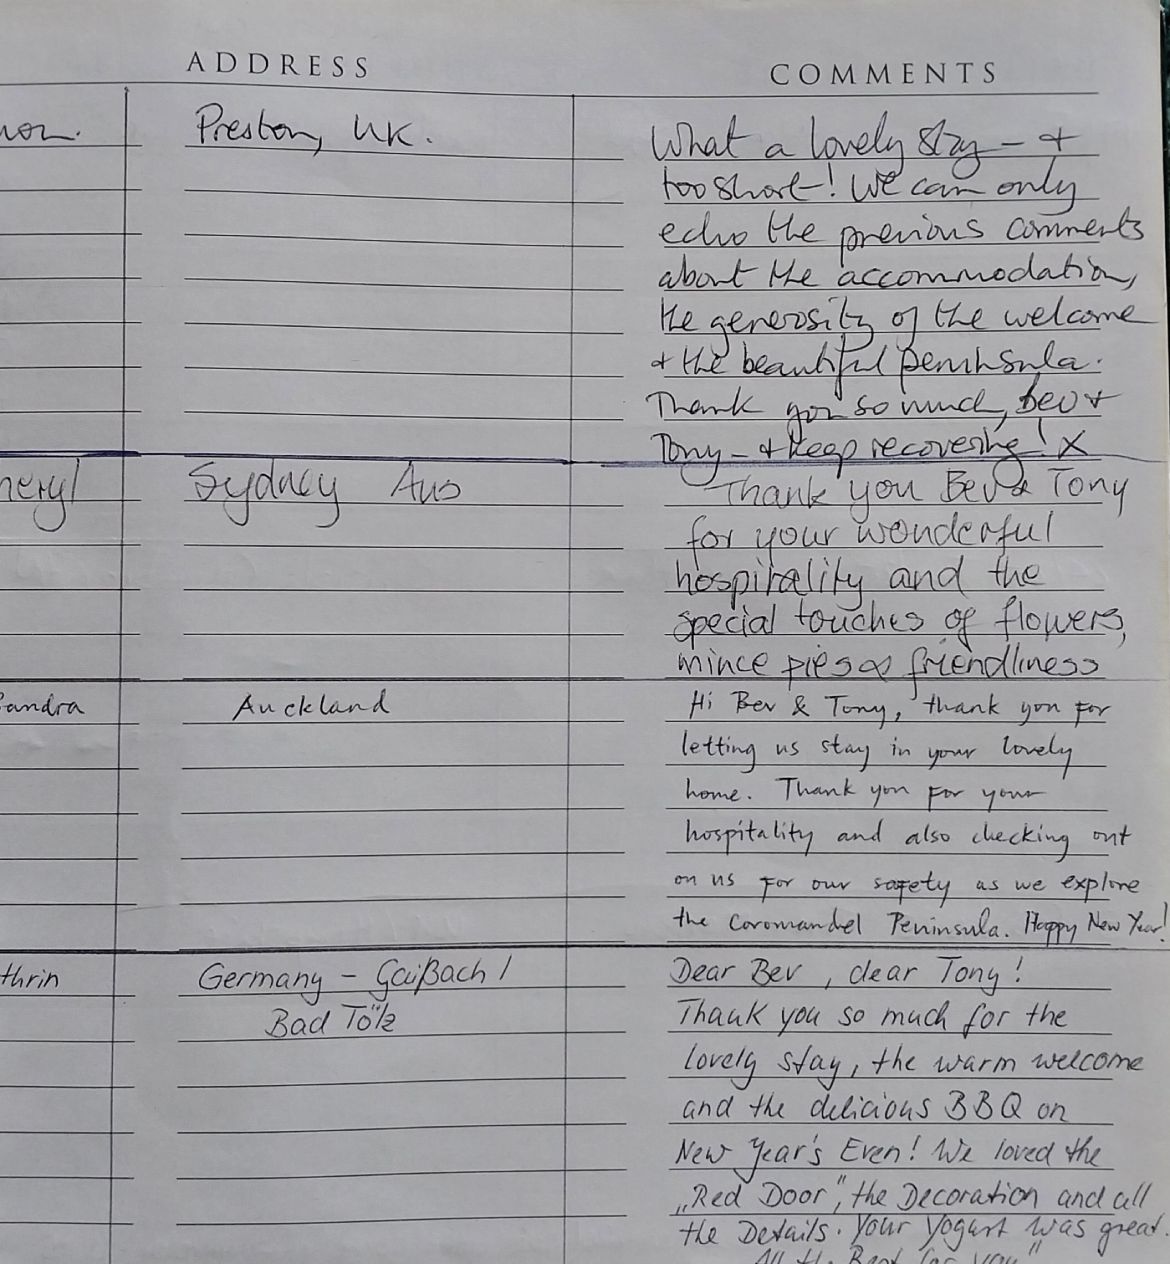 ADDRESS
COMMENTS
Preston, UK.
What a lovely stay – +
too short! We can only
echo the previous comments
about the accommodation,
the generosity of the welcome
+ the beautiful peninsula.
Thank you so much, Bev +
Tony – + keep recovering! X
heryl
Sydney Aus
Thank you Bev & Tony
for your wonderful
hospitality and the
special touches of flowers,
mince pies & friendliness
andra
Auckland
Hi Bev & Tony, thank you for
letting us stay in your lovely
home. Thank you for your
hospitality and also checking out
on us for our safety as we explore
the Coromandel Peninsula. Happy New Year!
thrin
Germany – Gaißach /
Bad Tölz
Dear Bev, dear Tony!
Thank you so much for the
lovely stay, the warm welcome
and the delicious BBQ on
New Year's Even! We loved the
„Red Door", the Decoration and all
the Details. Your Yogurt was great.
All the Best for you"